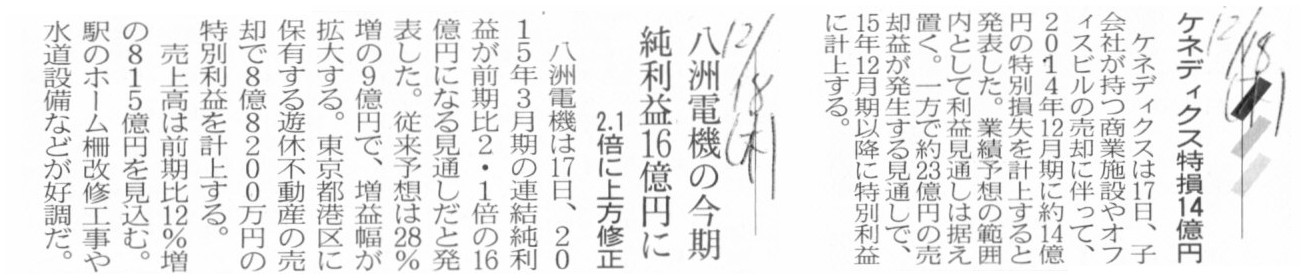 12/18(木)
ケネディクス特損14億円
ケネディクスは17日、子
会社が持つ商業施設やオフ
ィスビルの売却に伴って、
2014年12月期に約14億
円の特別損失を計上すると
発表した。業績予想の範囲
内として利益見通しは据え
置く。一方で約23億円の売
却益が発生する見通しで、
15年12月期以降に特別利益
に計上する。
12/18(木)
八洲電機の今期
純利益16億円に
2.1倍に上方修正
八洲電機は17日、20
15年3月期の連結純利
益が前期比2・1倍の16
億円になる見通しだと発
表した。従来予想は28%
増の9億円で、増益幅が
拡大する。東京都港区に
保有する遊休不動産の売
却で8億8200万円の
特別利益を計上する。
売上高は前期比12%増
の815億円を見込む。
駅のホーム柵改修工事や
水道設備などが好調だ。